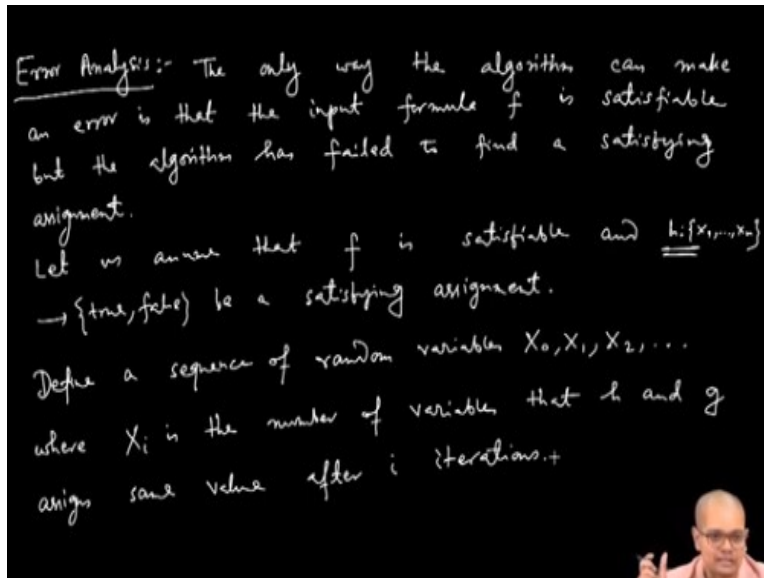 Error Analysis:- The only way the algorithm can make
an error is that the input formula f is satisfiable
but the algorithm has failed to find a satisfying
assignment.
Let us assume that f is satisfiable and h:{x₁,...,xₙ}
→ {true, false} be a satisfying assignment.
Define a sequence of random variables X₀, X₁, X₂, ...
where Xᵢ is the number of variables that h and g
assigns same value after i iterations.